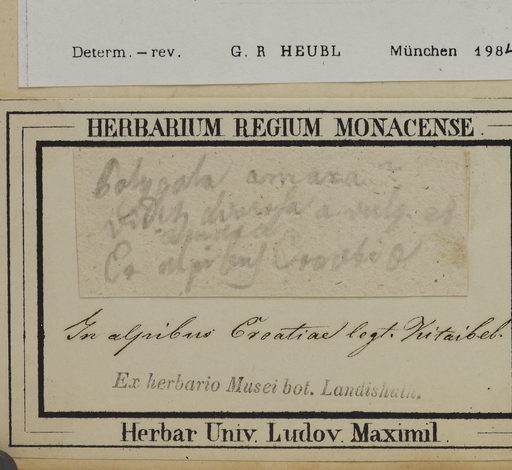 Determ. – rev. G. R HEUBL München 1984
HERBARIUM REGIUM MONACENSE
Polygala amara
diversa a vulg. et
Ex alpibus Croatiae
In alpibus Croatiae legt. Kitaibel.
Ex herbario Musei bot. Landishuth.
Herbar Univ. Ludov. Maximil.